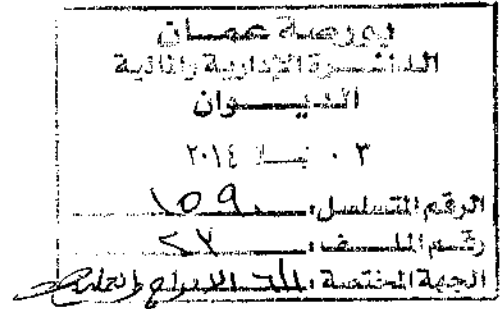 بورصة عمان
الدائرة الإدارية والمالية
الديوان
٠٣ نيسان ٢٠١٤
الرقم المتسلسل: ١٥٩٠
رقم الملف: ٢٧
الجهة المختصة: